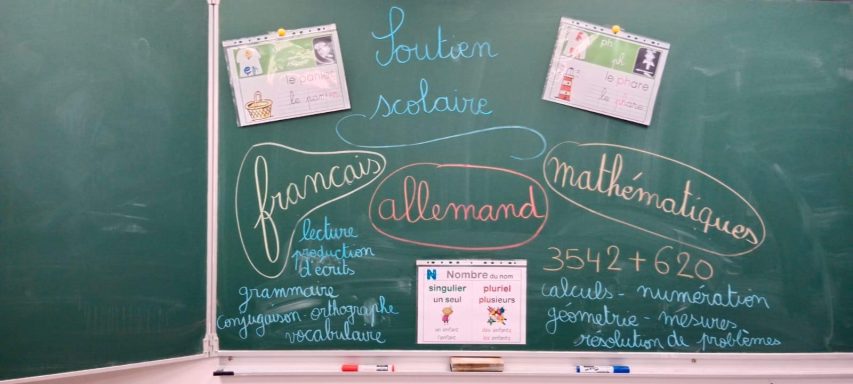 Soutien
scolaire
le panier
le panier
ph
ph
le phare
le phare
francais
allemand
mathématiques
lecture
production
d'écrits
grammaire
conjugaison - orthographe
vocabulaire
N Nombre du nom
singulier pluriel
un seul plusieurs
un enfant des enfants
l'enfant les enfants
3542 + 620
calculs - numération
géometrie - mesures
résolution de problèmes